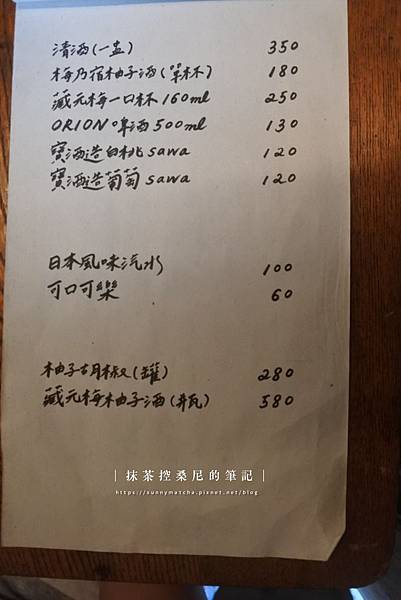 清酒(一盅) 350
梅乃宿柚子酒(單杯) 180
藏元梅一口杯 160ml 250
ORION啤酒 500ml 130
寶酒造白桃 sawa 120
寶酒造葡萄 sawa 120
日本風味汽水 100
可口可樂 60
柚子胡椒(罐) 280
藏元梅柚子酒(瓶) 580
| 抹茶控桑尼的筆記 |
https://sunnymatcha.pixnet.net/blog